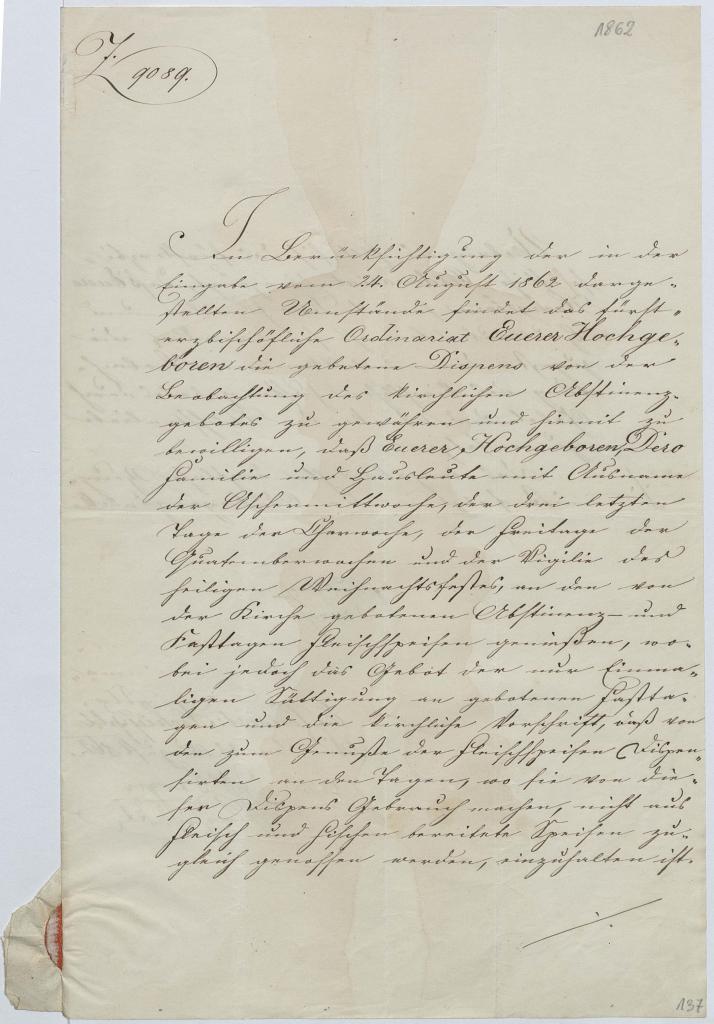 1862
Z. 9089.
In Berücksichtigung der in der
Eingabe vom 24. August 1862 darge-
stellten Umstände findet das fürst-
erzbischöfliche Ordinariat Euerer Hochge-
boren die gebetene Dispens von der
Beobachtung des kirchlichen Abstinenz-
gebotes zu gewähren und hiemit zu
bewilligen, daß Euerer Hochgeboren, Dero
Familie und Hausleute mit Ausname
der Aschermittwoche, der drei letzten
Tage der Charwoche, der Freitage der
Quatemberwochen und der Vigilie des
heiligen Weihnachtsfestes, an den von
der Kirche gebotenen Abstinenz- und
Fasttagen Fleischspeisen genießen, wo-
bei jedoch das Gebot der nur Einma-
ligen Sättigung an gebotenen Fastta-
gen und die kirchliche Vorschrift, daß von
den zum Genuße der Fleischspeisen Dispen-
sirten an den Tagen, wo sie von die-
ser Dispens Gebrauch machen, nicht aus
Fleisch und Fischen bereitete Speisen zu-
gleich genossen werden, einzuhalten ist.
./.
137